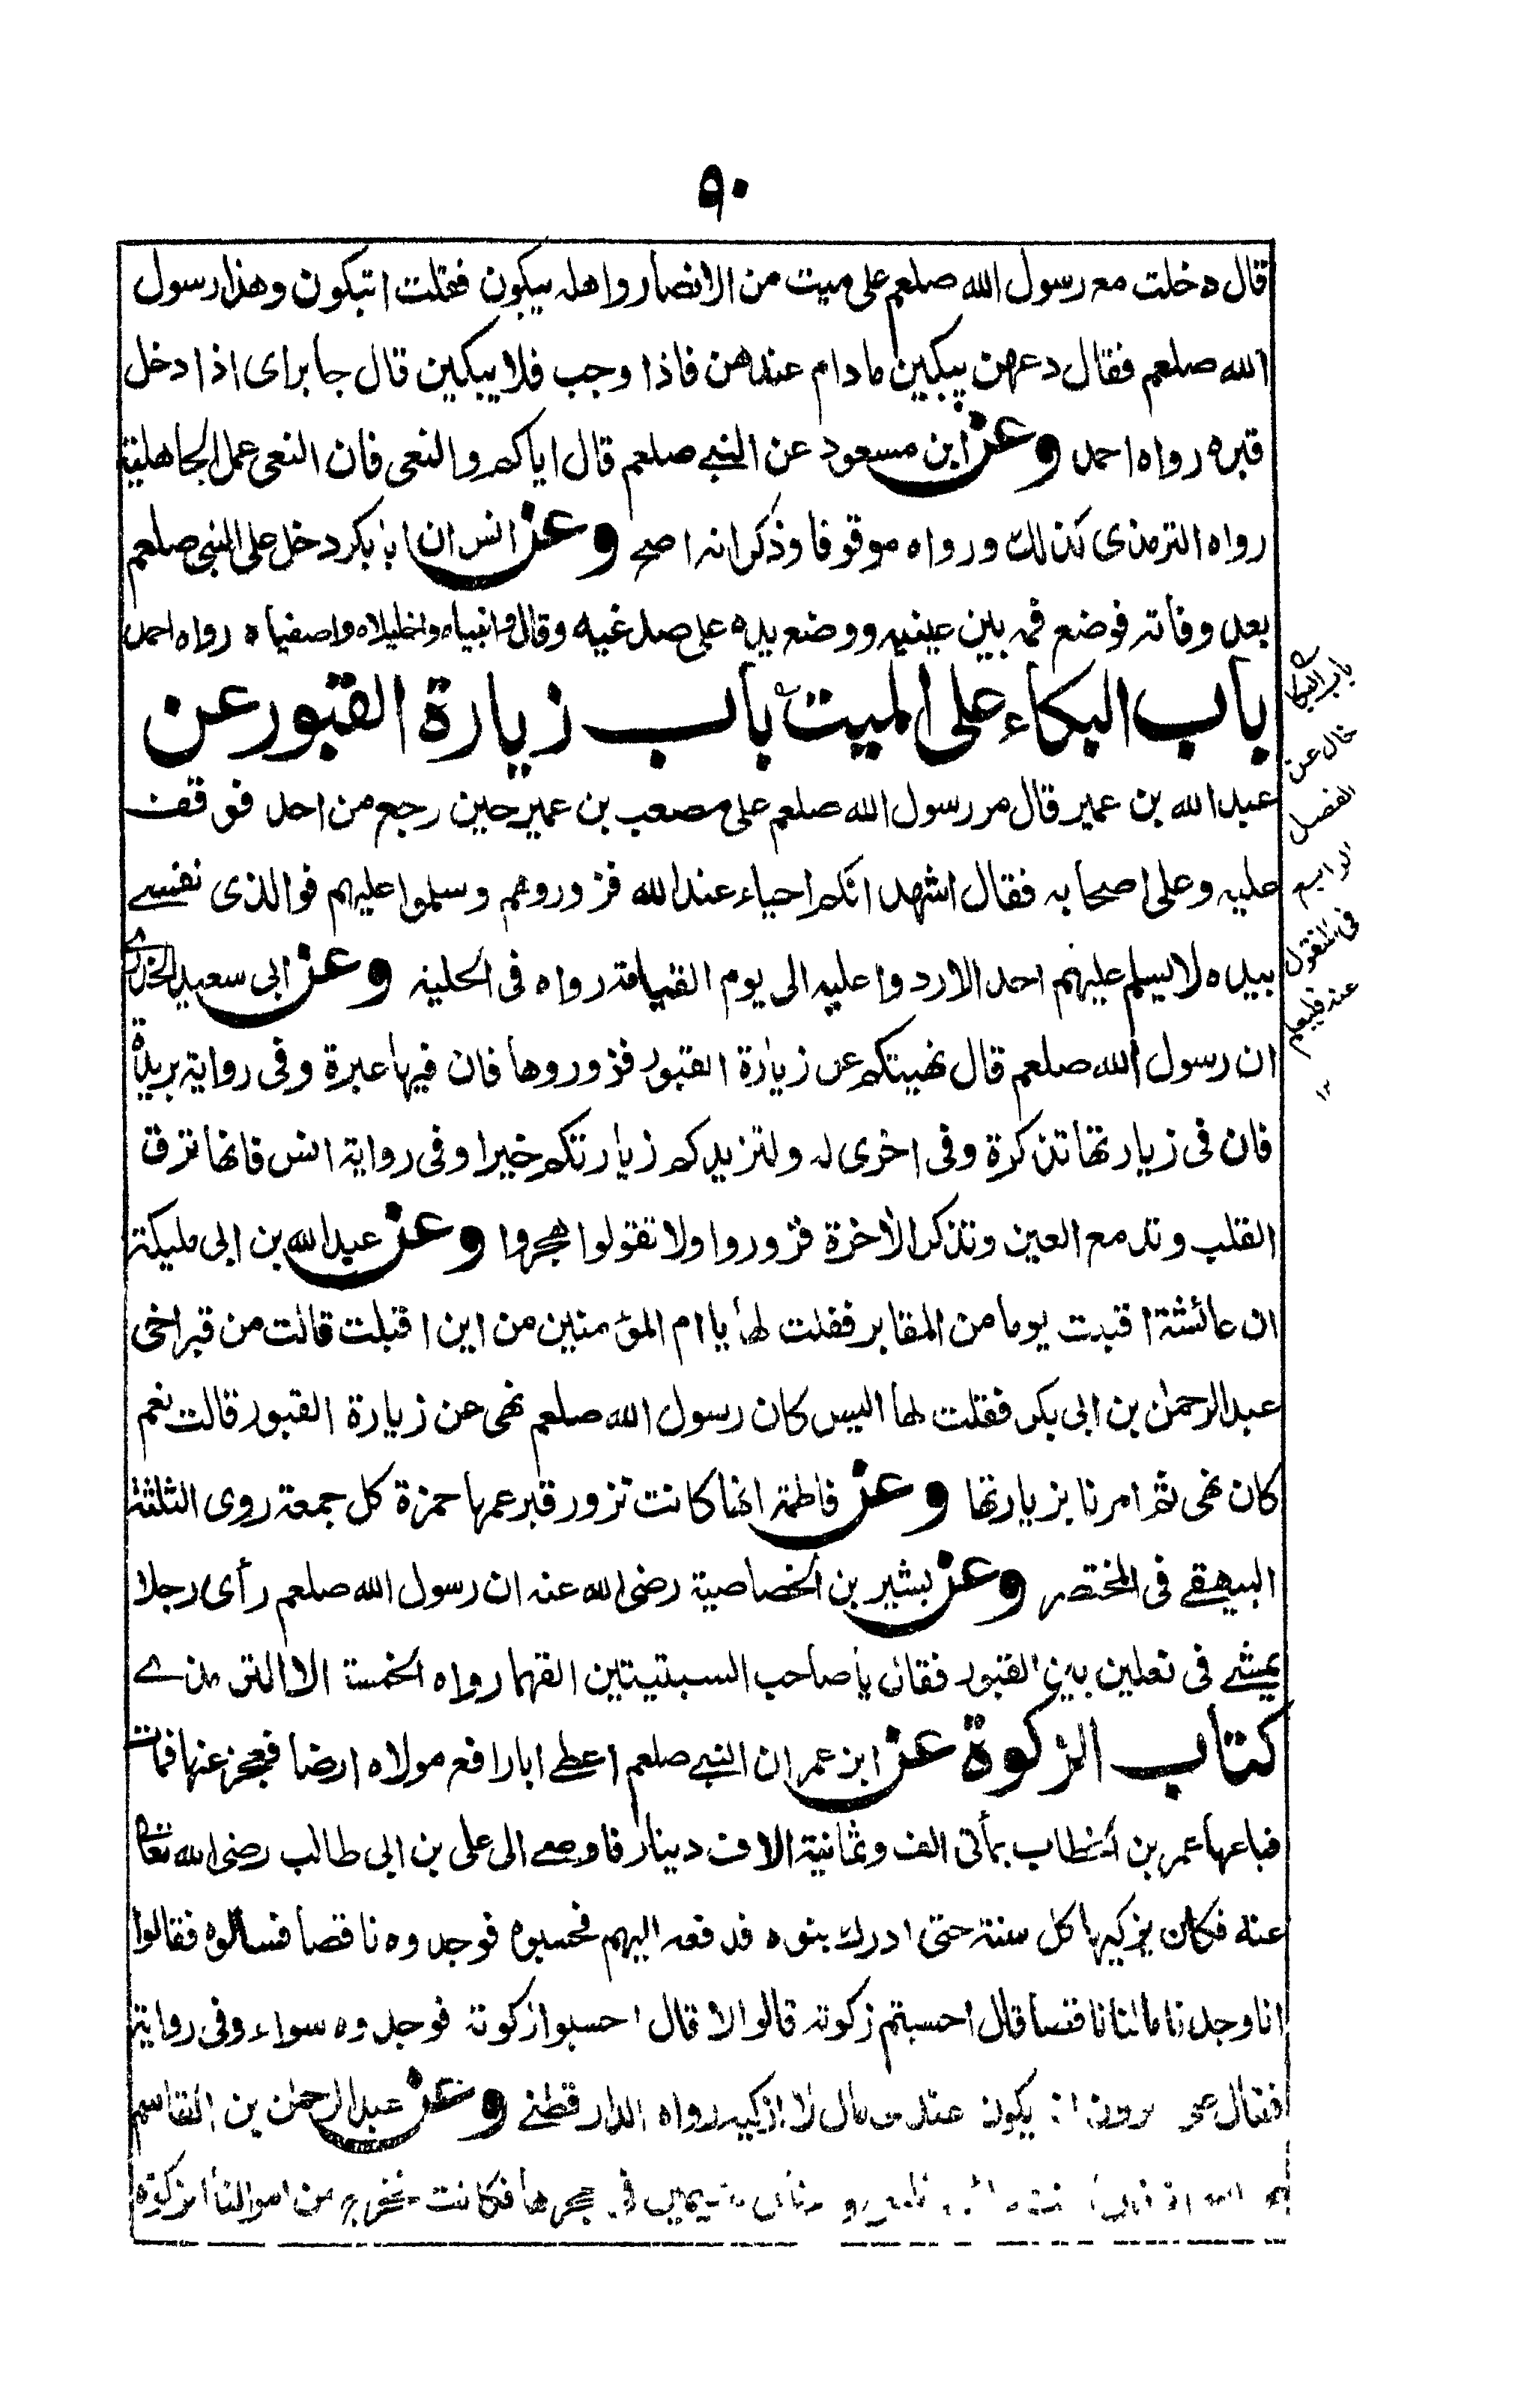 ٩٠
قال دخلت مع رسول الله صلعم على ميت من الانصار واهله يبكون فقلت اتبكون وهذا رسول
الله صلعم فقال دعهن يبكين ما دام عندهن فاذا وجب فلا يبكين قال جابر اى اذا دخل
قبره رواه احمد وعن ابن مسعود عن النبي صلعم قال اياكم والنعى فان النعى عمل الجاهلية
رواه الترمذى كذلك ورواه موقوفا وذكر انه اصح وعن انس ان ابا بكر دخل على النبى صلعم
بعد وفاته فوضع فمه بين عينيه ووضع يده على صدغيه وقال وانبياه واخليلاه واصفياه رواه احمد
باب البكاء على الميت باب زيارة القبور عن
عبد الله بن عمير قال مر رسول الله صلعم على مصعب بن عمير حين رجع من احد فوقف
عليه وعلى اصحابه فقال اشهد انكم احياء عند الله فزوروهم وسلموا عليهم فوالذى نفسے
بيده لا يسلم عليهم احد الا ردوا عليه الى يوم القيامة رواه فى الحلية وعن ابى سعيد الخدرى
ان رسول الله صلعم قال نهيتكم عن زيارة القبور فزوروها فان فيها عبرة وفى رواية بريدة
فان فى زيارتها تذكرة وفى اخرى له ولتزيدكم زيارتكم خيرا وفى رواية انس فانها ترق
القلب وتدمع العين وتذكر الأخرة فزوروا ولا تقولوا هجرا وعن عبد الله بن ابى مليكة
ان عائشة اقبلت يوما من المقابر فقلت لها يا ام المؤمنين من اين اقبلت قالت من قبر اخى
عبد الرحمٰن بن ابى بكر فقلت لها اليس كان رسول الله صلعم نهى عن زيارة القبور قالت نعم
كان نهى ثم امرنا بزيارتها وعن فاطمة انها كانت تزور قبر عمها حمزة كل جمعة روى الثلثة
البيهقے فى المختصر وعن بشير بن الخصاصية رضى الله عنه ان رسول الله صلعم رأى رجلا
يمشے فى نعلين بين القبور فقال يا صاحب السبتيتين القهما رواه الخمسة الا الترمذے
كتاب الزكوة عن ابن عمر ان النبے صلعم اعطے ابا رافع مولاه ارضا فعجز عنها فمات
فباعها عمر بن الخطاب بمأتى الف وثمانية الاف دينار فاوصے الى على بن ابى طالب رضى الله تعالى
عنه فكان يزكيها كل سنة حتى ادرك بنوه فدفعه اليهم فحسبوه فوجدوه ناقصا فسألوه فقالوا
انا وجدنا مالنا ناقصا قال احسبتم زكوته قالوا لا قال احسبوا زكوته فوجدوه سواء وفى رواية
فقال يكون عندى مال لا ازكيه رواه الدارقطنے وعن عبد الرحمٰن بن القاسم
يتيمين فى حجرها فكانت تخرج من اموالنا الزكوة
باب البكا
خال عن
الفصل
الرابع
فى المنقول
عنه فليعلم
١٢